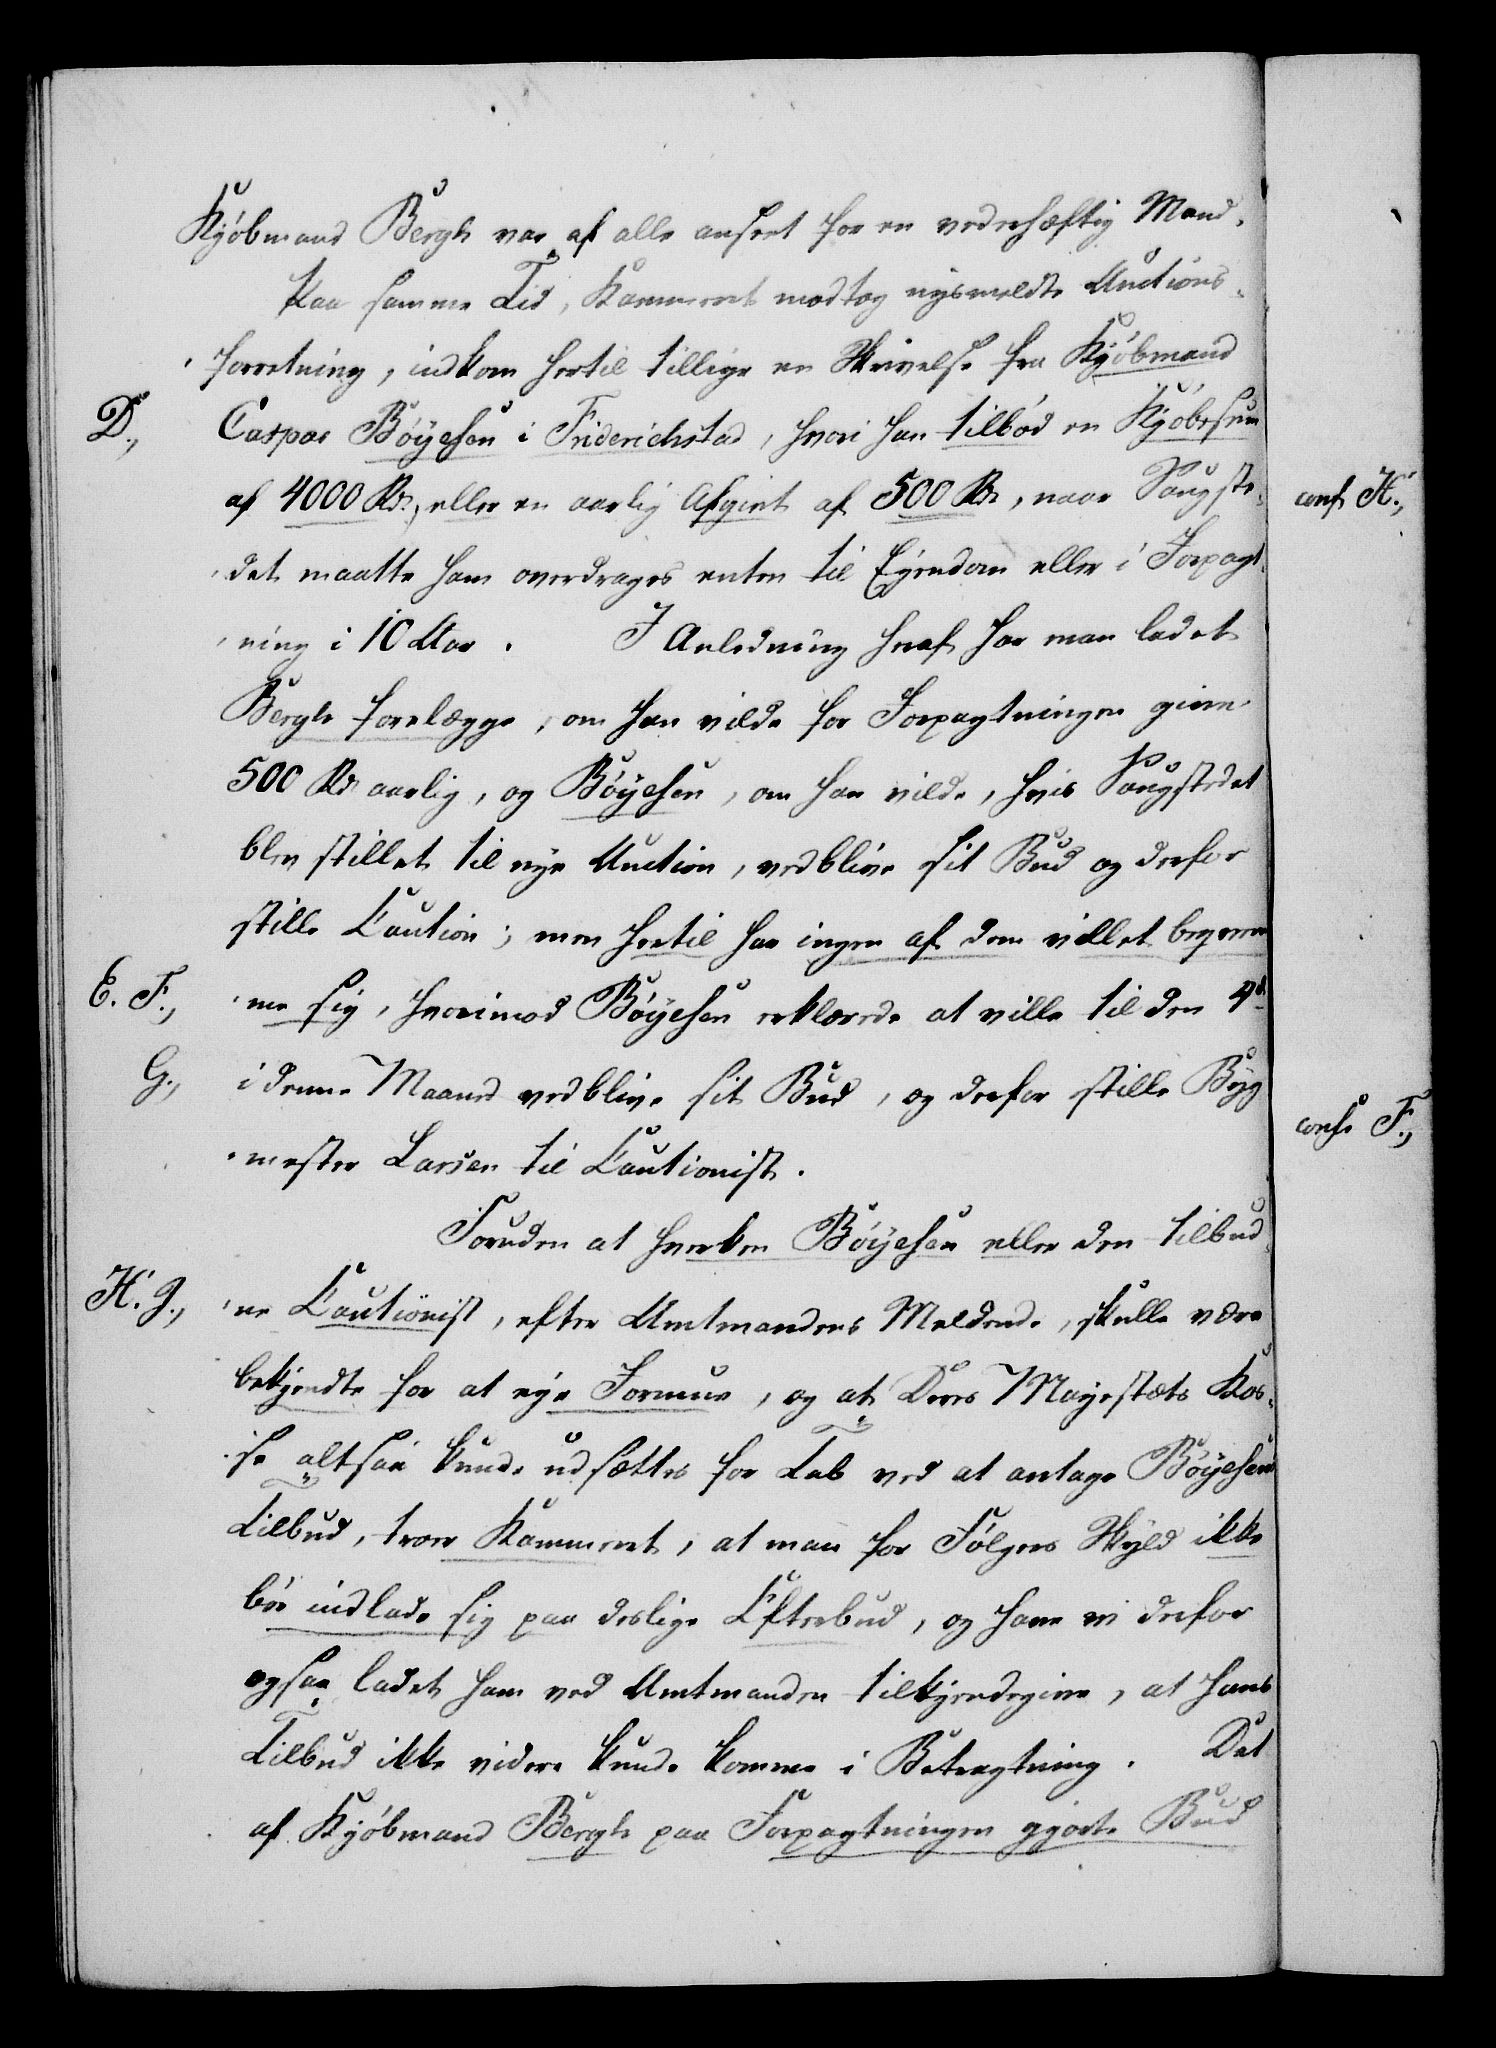 Kjöbmand Bergh var af alle anseet for en vederhæftig Mand.
Paa samme Tid, Kammeret modtog nysmeldte Auctions-
forretning, indkom hertil tillige en Skrivelse fra Kjöbmand
D., Caspar Böÿesen i Friderichstad, hvori han tilböd en Kjöbesum
af 4000 Rd., eller en aarlig Afgivt af 500 Rd, naar Saugste- conf. H.,
det maatte ham overdrages enten til Eyendom eller i Forpagt-
ning i 10 Aar. I Anledning heraf har man ladet
Bergh forelægge, om han vilde for Forpagtningen give
500 Rd aarlig, og Böÿesen, om han vilde, hvis Saugstedet
blev stillet til nye Auction, vedblive sit Bud og derfor
stille Caution; men hertil har ingen af dem villet beqvem-
E. F., me sig, hvorimod Böÿesen erklærede at ville til den 4d
G., i denne Maaned vedblive sit Bud, og derfor stille Byg- conf. F.,
mester Larsen til Cautionist.
Foruden at hverken Böÿesen eller den tilbud-
H. J., ne Cautionist, efter Amtmandens Meldende, skulle være
bekjendte for at eye Formue, og at Deres Mayestæts Kas-
se altsaa kunde udsættes for Tab ved at antage Böÿesens
Tilbud, troer Kammeret, at man for Fölgens Skyld ikke
bör indlade sig paa deslige Efterbud, og have vi derfor
ogsaa ladet ham ved Amtmanden tilkjendegive, at hans
Tilbud ikke videre kunde komme i Betragtning. Det
af Kjöbmand Bergh paa Forpagtningen gjorte Bud